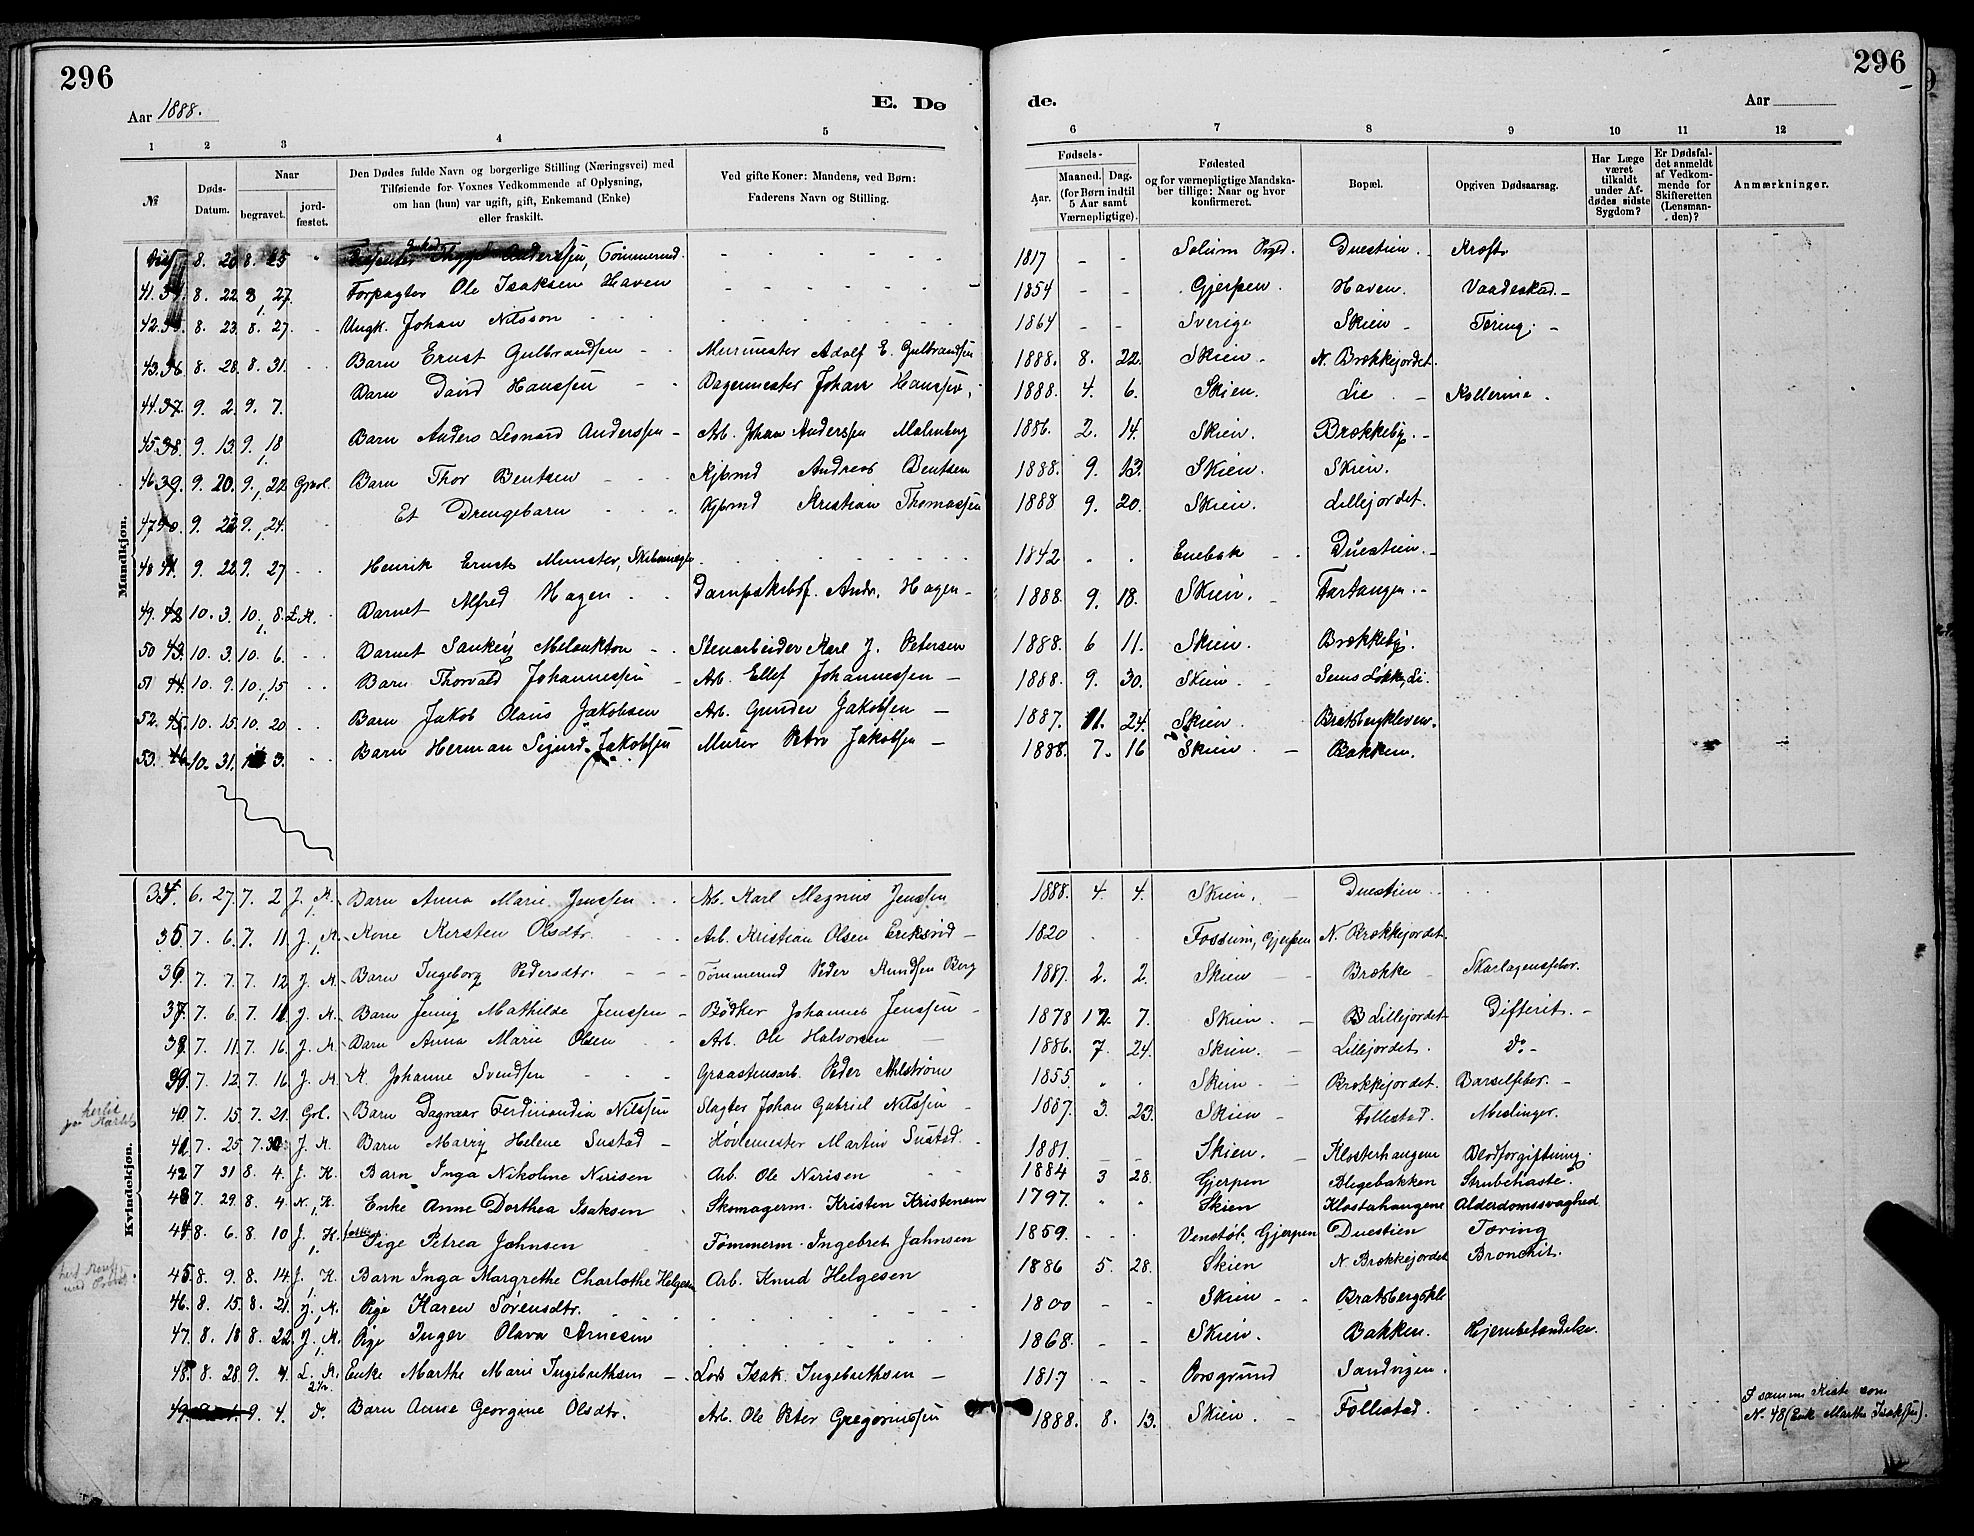 296
296
Aar 1888.
E. Dø
de.
Aar
1 2 3 4 5 6 7 8 9 10 11 12
№
Døds-Datum.
Naar
begravet.
jord-fæstet.
Den Dødes fulde Navn og borgerlige Stilling (Næringsvei) med
Tilføiende for Voxnes Vedkommende af Oplysning,
om han (hun) var ugift, gift, Enkemand (Enke)
eller fraskilt.
Ved gifte Koner: Mandens, ved Børn:
Faderens Navn og Stilling.
Fødsels-
Aar.
Maaned. Dag.
(for Børn indtil
5 Aar samt
Værnepligtige).
Fødested
og for værnepligtige Mandska-
ber tillige: Naar og hvor
konfirmeret.
Bopæl.
Opgiven Dødsaarsag.
Har Læge
været
tilkaldt
under Af-
dødes sidste
Sygdom?
Er Dødsfal-
det anmeldt
af Vedkom-
mende for
Skifteretten
(Lensman-
den)?
Anmærkninger.
Mandkjøn.
8. 20 8. 25 Anderssen, Tømmermd. 1817 - - Solum Prgd. Duestien. Kræft
41. 8. 22 8, 27. Forpagter Ole Isaksen Haven 1854 - - Gjerpen. Haven. Vaadeskud.
42. 8. 23. 8. 27. Ungk. Johan Nilsson 1864 - - Sverige Skien Tæring.
43. 36. 8. 28. 8. 31. Barn Ernst Gulbrandsen Murmester Adolf E. Gulbrandsen 1888. 8. 22. Skien. N. Brækkejordet.
44. 37. 9. 2. 9. 7. Barn David Hanssen Bagermester Johan Hanssen 1888. 4. 6. Skien. Lie Kollerine.
45. 38. 9. 13. 9. 18 Barn Anders Leonard Anderssen Arb. Johan Anderssen Malmberg 1886. 2. 14. Skien. Brækkeby.
46. 39. 9. 20. 9, 22. Gravl. Barn Thor Bentsen Kjbmd Andreas Bentsen 1888. 9. 13. Skien. Skien.
47. 40. 9. 22 9. 24. Et Drengebarn Kjbmd Kristian Thomassen 1888 9. 20. Skien. Lillejordet.
48 41. 9. 22. 9. 27 Henrik Ernst Munster, 1842 Enebak Duestien.
49. 42 10. 3. 10, 8. L.K. Barnet Alfred Hagen Dampskibsf. Andr. Hagen 1888. 9. 18. Skien. Fartangen.
50 43. 10. 3. 10. 6. Barnet Sankey Melankton Stenarbeider Karl J. Petersen 1888. 6 11. Skien. Brækkeby.
51 44. 10. 9. 10, 15 Barn Thorvald Johannessen Arb. Ellef Johannessen 1888. 9. 30. Skien. Sems Løkke, Li.
52. 45. 10. 15. 10. 20 Barn Jakob Olaus Jakobsen Arb. Gunder Jakobsen 1887. 11. 24. Skien. Bratsbergkleven.
53. 46. 10. 31. 3. Barn Herman Sigurd Jakobsen Murer Petro Jakobsen 1888. 7. 16 Skien. Bakken.
Kvindekjøn.
34. 6. 27. 7. 2 J. K. Barn Anna Marie Jenssen Arb. Karl Magnus Jenssen 1888. 4. 4. Skien. Duestien
35. 7. 6. 7. 11 J. K. Kone Kersten Olsdtr. Arb. Kristian Olsen Eriksrød 1820 Fossum, Gjerpen N. Brækkejordet.
36. 7. 7. 7. 12 J. K. Barn Ingeborg Pedersdtr. Tømmermd Peder Knudsen Berg 1887. 2. 2. Skien Brække Skarlagensfeber.
37. 7. 6. 7. 11 J. K. Barn Jenny Mathilde Jenssen Bødker Johannes Jenssen 1878 12. 7. Skien. Lillejordet Difterit.
38. 7. 11. 7. 16. J. K. Barn Anna Marie Olsen Arb. Ole Halvorsen 1886. 7. 24. Skien. Lillejordet. do.
39. 7. 12. 7. 16 J. K. K. Johanne Svendsen Graastensarb. Peder Ahlstrøm 1855. Skien Brækkejordet. Barselfeber.
40. 7. 15. 7. 21. Grl. Barn Dagmar Ferdinandia Nilssen Slagter Johan Gabriel Nilssen 1887. 3. 23. Skien Follestad. Meslinger.
41. 7. 25. 7. 30 J. K. Barn Marry Helene Sustad Høvlemester Martin Sustad 1881. - - Skien. Klosterhaugene Blodforgiftning.
42 7 31 8. 4. J. K. Barn Inga Nikoline Nirisen Arb. Ole Nirisen 1884 3 28. Gjerpen Bligebakken Strubehoste.
43 7. 29. 8. 4. N. K. Enke Anne Dorthea Isaksen Skomagerm. Kristen Kristensen 1797. Skien Klosterhaugene Alderdomssvaghed
44 8. 6. 8. 10 J. K. Pige Petrea Jahnsen Tømmerm. Ingebret Jahnsen 1859. Venstøb. Gjerpen Duestien Tæring
45. 8. 9. 8. 14. J. K. Barn Inga Margrethe Charlothe Helgesen Arb. Knud Helgesen 1886 5. 28. Skien N. Brækkejordet Bronchit.
46. 8. 15. 8. 21. J. K. Pige Karen Sørensdtr. 1800 - - Skien Bratsbergskle
47. 8. 18 8. 22. J. K. Pige Inger Olava Arnesen 1868. - - Skien. Bakken. Hjernebetændelse.
48. 8. 28. 9. 4. L. K. Enke Marthe Marie Ingebrethsen Lods Isak Ingebrethsen 1817 - - Porsgrund Sandvigen.
49. 9. 4. do. Barn Anne Georgine Olsdtr. Arb. Ole Peter Gregoriussen 1888. 8. 13. Skien. Follestad. I samme Kiste som
No. 48 (Enk. Marthe Isaksen).